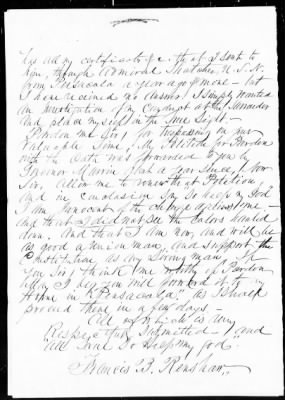 has all my certificates &c. that I sent to
you, through Admiral U.S.N.
from Pensacola a year ago & more - but
I have received no answer. I simply wanted
an investigation of my conduct at the surrender
and place my self in the true light -
Pardon me Sir, for trespassing on your
valuable time, My Petition for Pardon
with the oath was forwarded to you by
Governor Marvin just a year since, Now
Sir, allow me to renew that Petition
and in conclusion say So help my God
I am innocent of the charge against me -
and that I did not see the Colors hauled
down, and that I am now, and will be
as good a Union man, and support the
Constitution, as any living man. If
you Sir, think me worthy of Pardon
I beg you will forward it to my
Home in "Pensacola," as I shall
proceed there in a few days -
All of which is very
Respectfully Submitted - and
all true So help my God"
Francis B. Renshaw